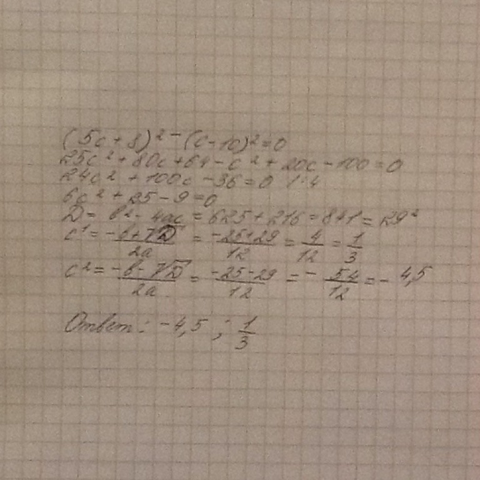 (5c+8)²-(c-10)²=0
25c²+80c+64-c²+20c-100=0
24c²+100c-36=0 |:4
6c²+25-9=0
D= b²-4ac=625+216=841=29²
c¹=(-b+√D)/2a=(-25+29)/12=4/12=1/3
c²=(-b-√D)/2a=(-25-29)/12=-54/12=-4,5
Ответ: -4,5; 1/3